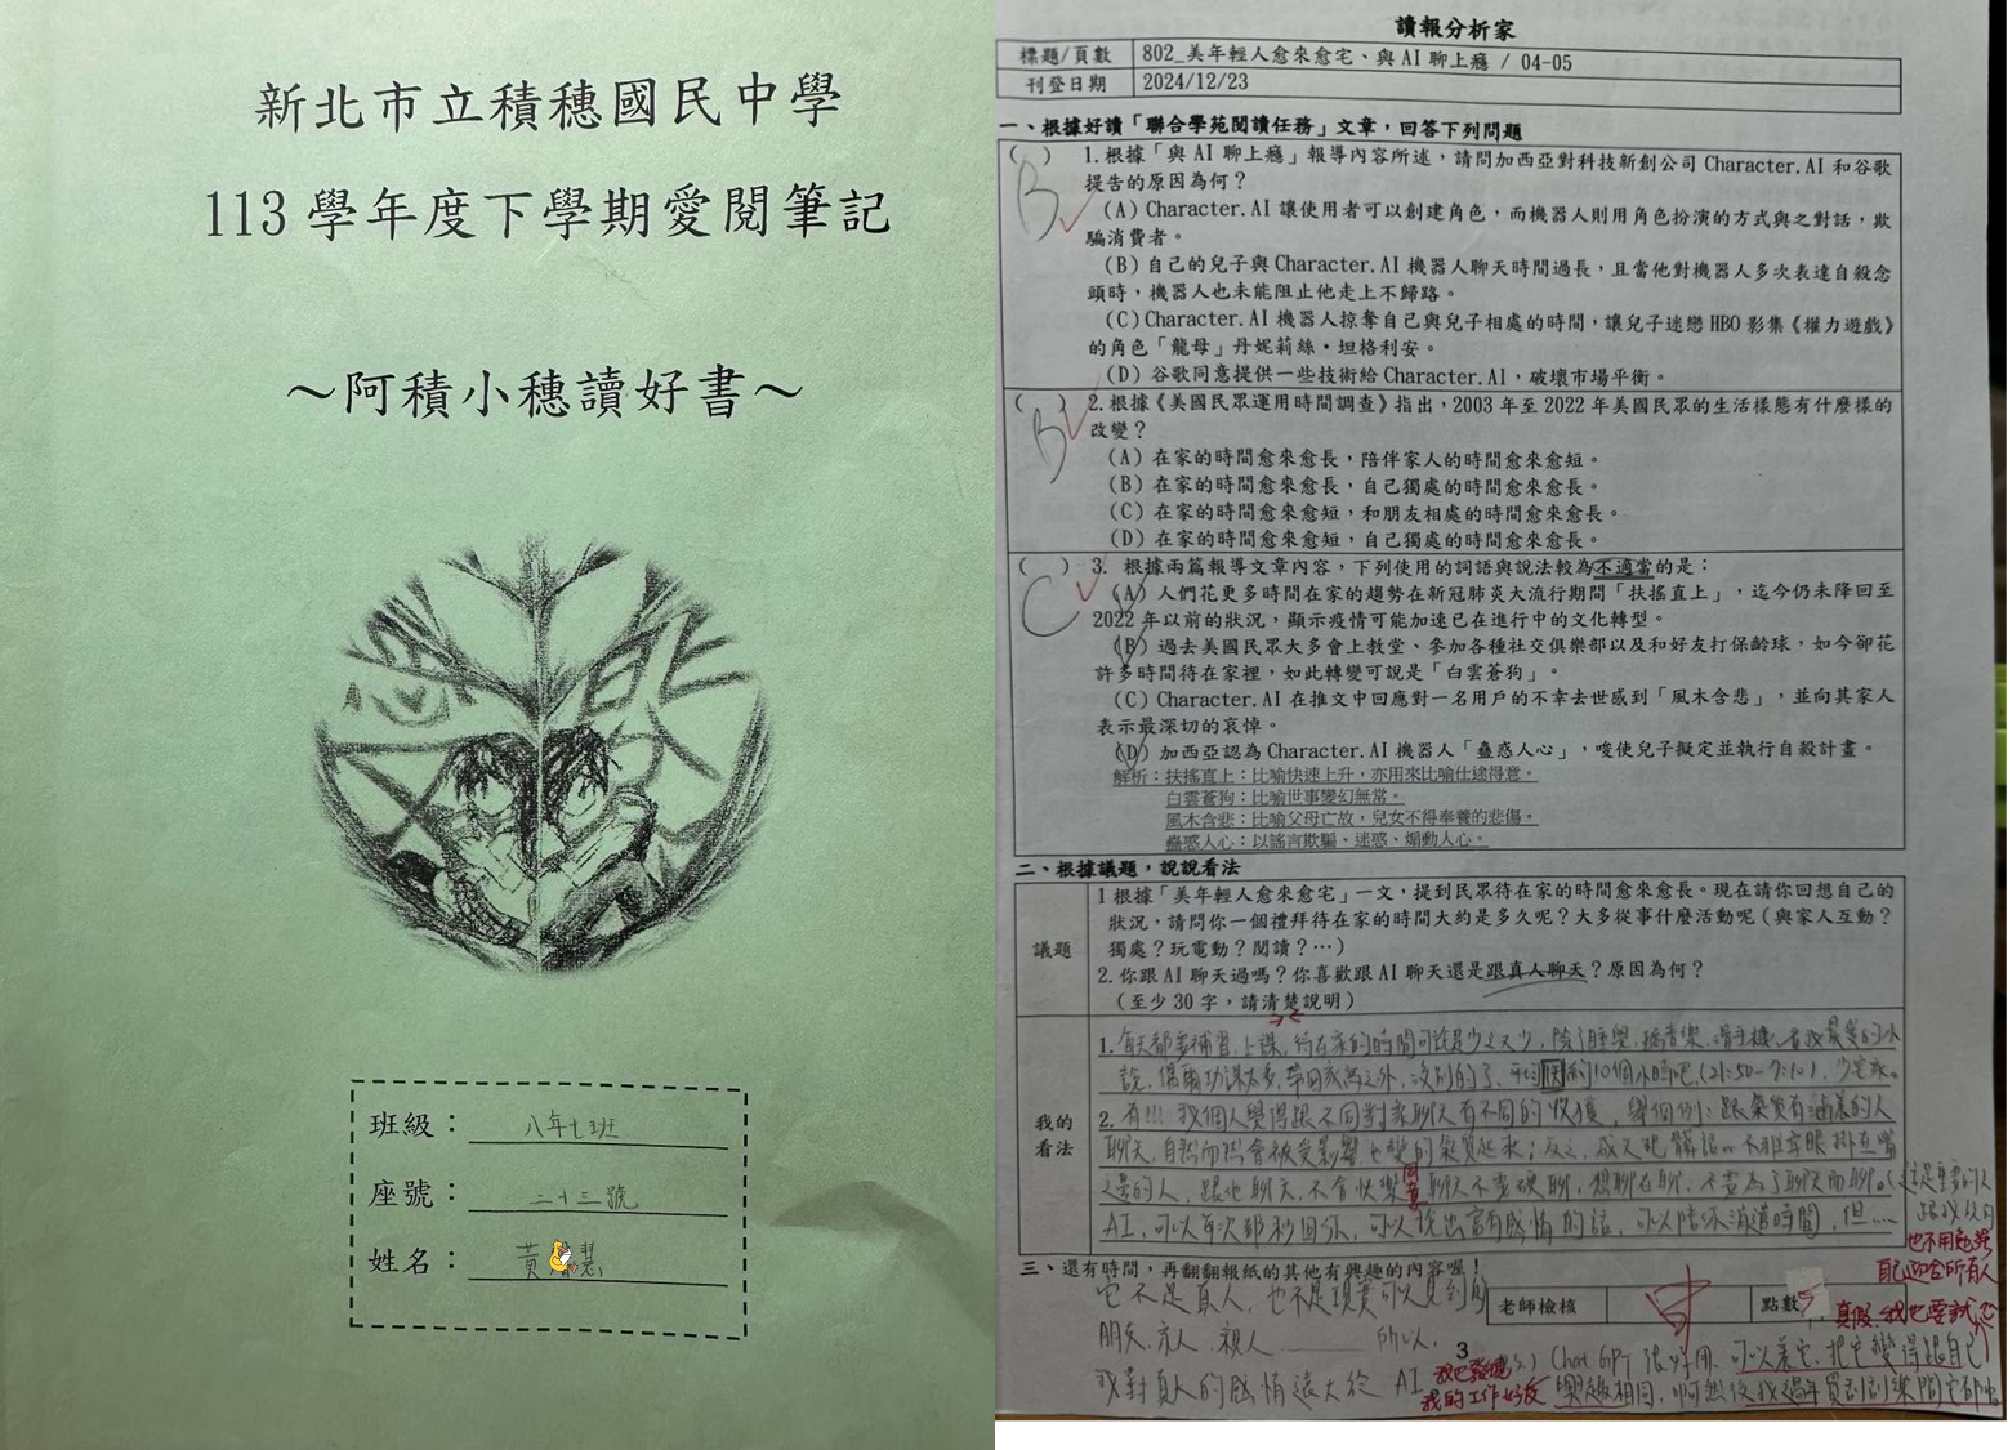 新北市立積穗國民中學
113學年度下學期愛閱筆記
～阿積小穗讀好書～
班級：八年七班
座號：二十三號
姓名：黃 慧
讀報分析家
標題/頁數 802_美年輕人愈來愈宅、與AI聊上癮 / 04-05
刊登日期 2024/12/23
一、根據好讀「聯合學苑閱讀任務」文章，回答下列問題
( B ) 1.根據「與AI聊上癮」報導內容所述，請問加西亞對科技新創公司Character.AI和谷歌
提告的原因為何？
(A)Character.AI讓使用者可以創建角色，而機器人則用角色扮演的方式與之對話，欺
騙消費者。
(B)自己的兒子與Character.AI機器人聊天時間過長，且當他對機器人多次表達自殺念
頭時，機器人也未能阻止他走上不歸路。
(C)Character.AI機器人掠奪自己與兒子相處的時間，讓兒子迷戀HBO影集《權力遊戲》
的角色「龍母」丹妮莉絲·坦格利安。
(D)谷歌同意提供一些技術給Character.AI，破壞市場平衡。
( B ) 2.根據《美國民眾運用時間調查》指出，2003年至2022年美國民眾的生活樣態有什麼樣的
改變？
(A)在家的時間愈來愈長，陪伴家人的時間愈來愈短。
(B)在家的時間愈來愈長，自己獨處的時間愈來愈長。
(C)在家的時間愈來愈短，和朋友相處的時間愈來愈長。
(D)在家的時間愈來愈短，自己獨處的時間愈來愈長。
( C ) 3. 根據兩篇報導文章內容，下列使用的詞語與說法較為不適當的是：
(A)人們花更多時間在家的趨勢在新冠肺炎大流行期間「扶搖直上」，迄今仍未降回至
2022年以前的狀況，顯示疫情可能加速已在進行中的文化轉型。
(B)過去美國民眾大多會上教堂、參加各種社交俱樂部以及和好友打保齡球，如今卻花
許多時間待在家裡，如此轉變可說是「白雲蒼狗」。
(C)Character.AI在推文中回應對一名用戶的不幸去世感到「風木含悲」，並向其家人
表示最深切的哀悼。
(D)加西亞認為Character.AI機器人「蠱惑人心」，唆使兒子擬定並執行自殺計畫。
解析：扶搖直上：比喻快速上升，亦用來比喻仕途得意。
白雲蒼狗：比喻世事變幻無常。
風木含悲：比喻父母亡故，兒女不得奉養的悲傷。
蠱惑人心：以謠言欺騙、迷惑、煽動人心。
二、根據議題，說說看法
議題
1根據「美年輕人愈來愈宅」一文，提到民眾待在家的時間愈來愈長。現在請你回想自己的
狀況，請問你一個禮拜待在家的時間大約是多久呢？大多從事什麼活動呢(與家人互動？
獨處？玩電動？閱讀？…)
2.你跟AI聊天過嗎？你喜歡跟AI聊天還是跟真人聊天？原因為何？
(至少30字，請清楚說明)
我的
看法
1.每天都要補習、上課，待在家的時間可說是少之又少，除了睡覺、聽音樂、滑手機、看我最愛的小
說，偶爾功課太多，帶回家寫之外，沒別的了，平均 約10個小時吧，(21:50-7:10)，
2.有!!! 我個人覺得跟不同對象聊天有不同的收穫，舉個例：跟氣質有涵養的人
聊天，自然而然會被受影響，也變的氣質起來；反之，成天把髒話 不雅字眼掛在嘴
邊的人，跟他聊天，不會快樂 同意 聊天不要硬聊，想聊在聊，不要為了聊天而聊。(這是重要的人
AI，可以每次都秒回你，可以說出富有感情的話，可以陪你消遣時間，但……
也不用勉強
自己迎合所有人
三、還有時間，再翻翻報紙的其他有興趣的內容喔！
它不是真人，也不是現實可以見到的
老師檢核 點數 5
真假，我也要試
朋友、家人、親人 所以，
3
我對真人的感情遠大於AI。
我也發現 Chat GPT 很好用，可以養它，把它變得跟自己
我的工作好友 興趣相同，